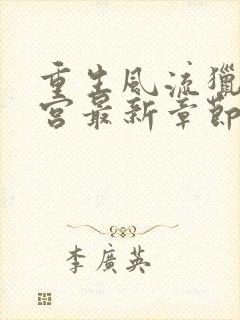 重生風流獵
宮最新章節
李廣英